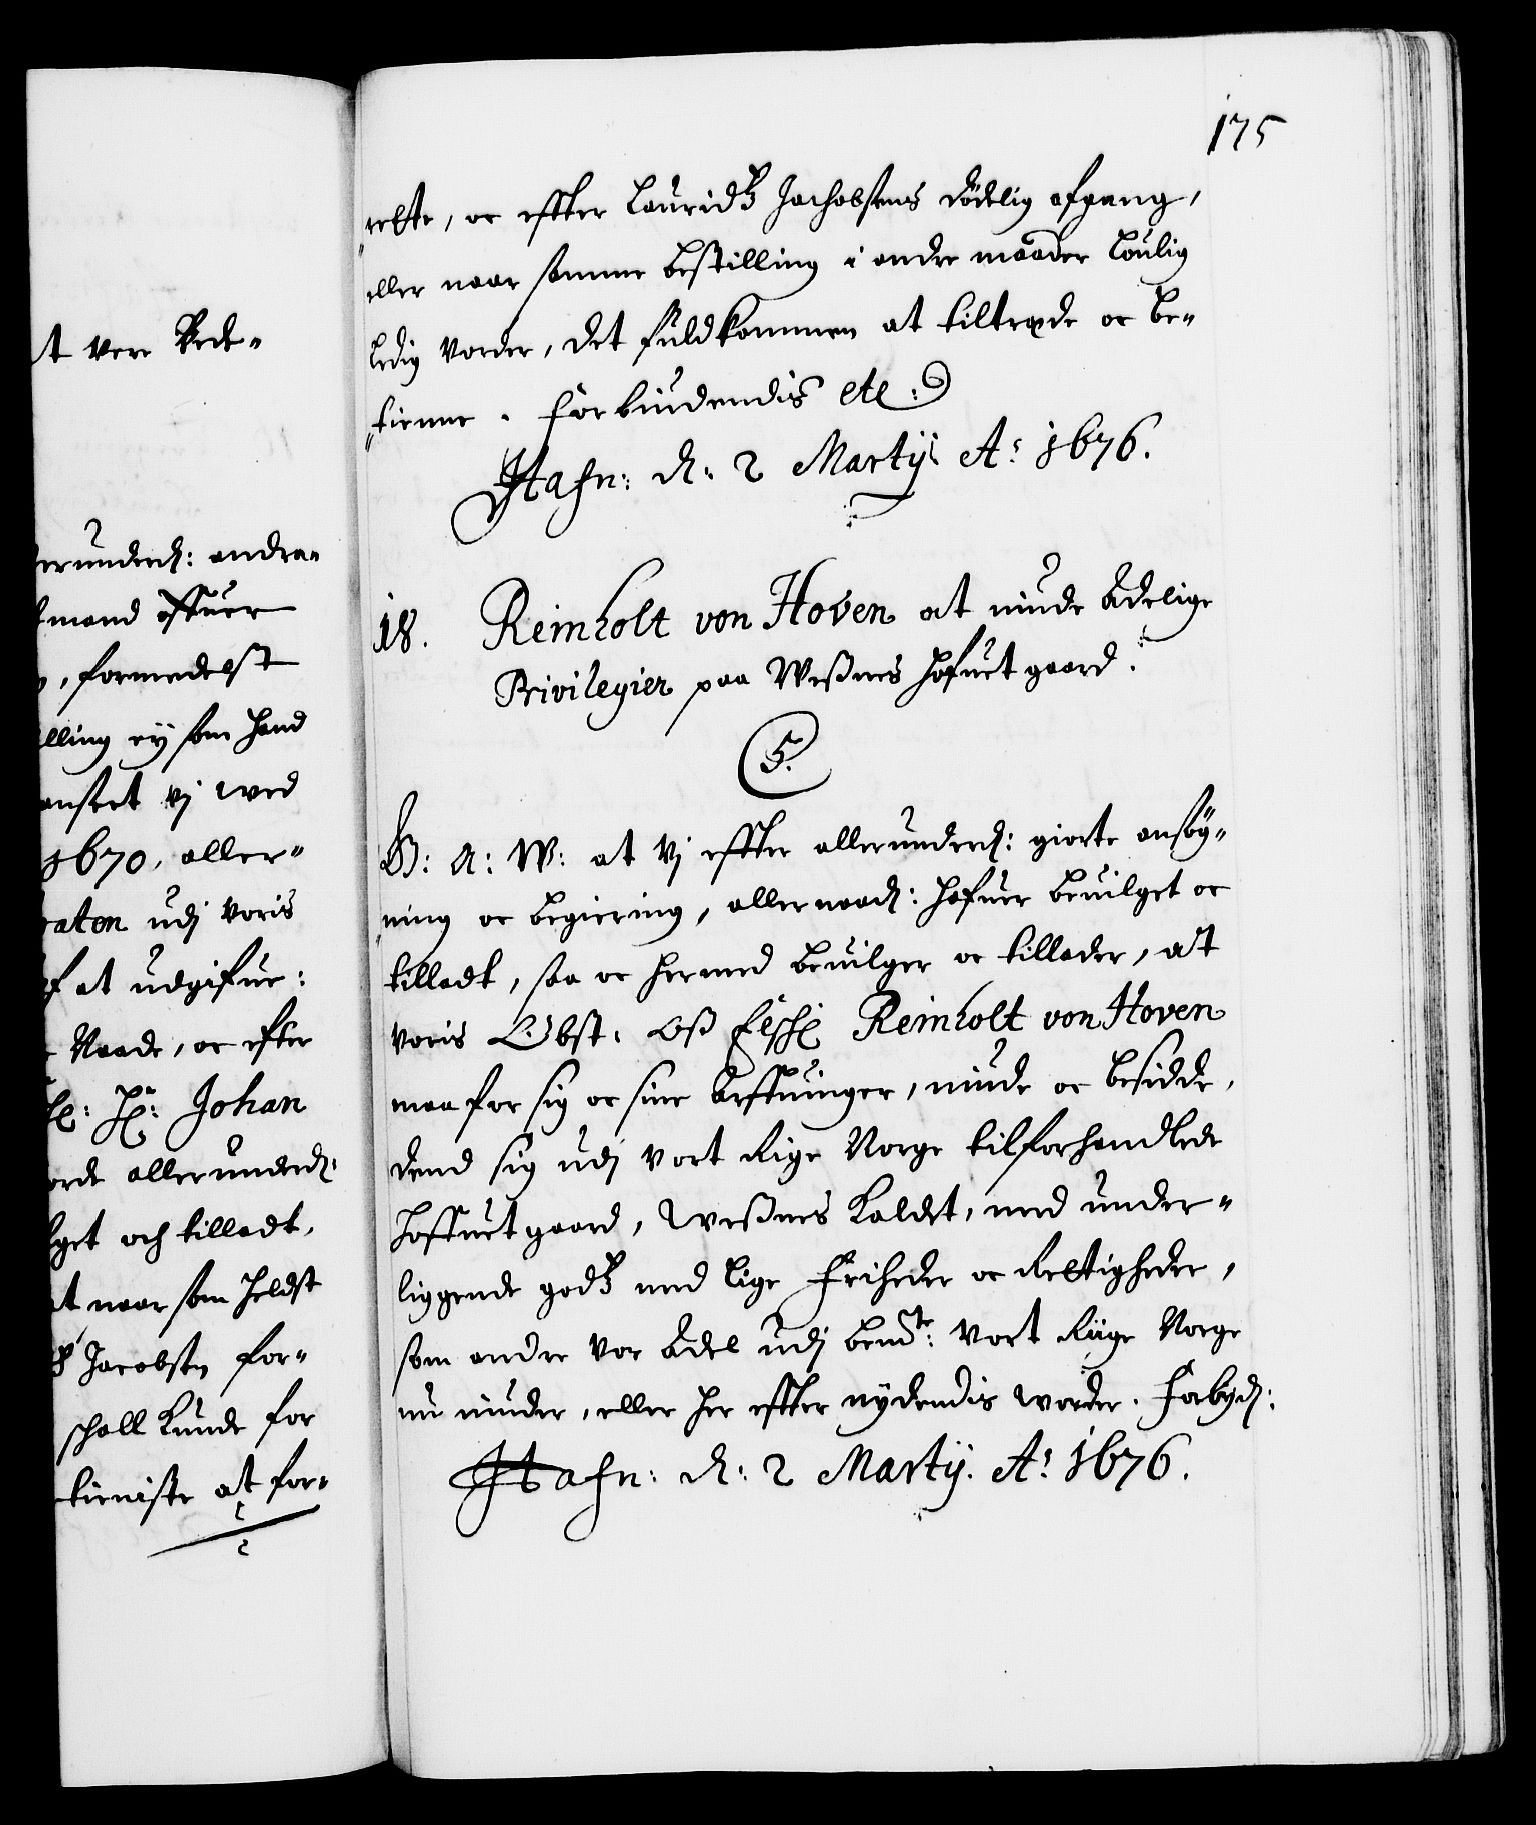 175
rette, oc effter Lauridtz Jachobsens dödelig afgang,
eller naar samme bestilling i andre maader loulig
ledig vorder, det fuldkommen at tiltræde oc be-
tienne. Forbiudendis etc:
Hafn: d: 2 Martij Ao 1676.
18. Reinholt von Hoven at niude Adelige
Privilegier paa Weßnes hofuet gaard.
5.
G: A: W: at Vj effter allerunderd: giorte ansöy-
ning oc begiering, allernaad: hafuer beuilget oc
tilladt, saa oc hermed beuilger oc tillader, at
voris Obst: Oß Elsch: Reinholt von Hoven
maa for sig oc sine Arffuinger, niude oc besidde,
dend sig udj vort Rige Norge tilforhandlede
Hoffuet gaard, Weßnes kaldet, med under-
liggende godtz med lige Friheder oc Rettigheder,
som andre vor Adel udj bemte: vort Riige Norge
nu niuder, eller her effter nydendis worder. Forbyd:
Hafn: d: 2 Martij. Ao 1676.
t vere Rede-
erunderd: andra-
mand offuer
, formedelst
lling ey som hand
anseet vj wed
1670, aller-
raten udj voris
f at udgifue:
Naade, oc effter
Hr: Johan
orde allerunderd:
lget och tilladt,
t naar som heldst
Jacobsen for-
schall kunde for
tieniste at for-